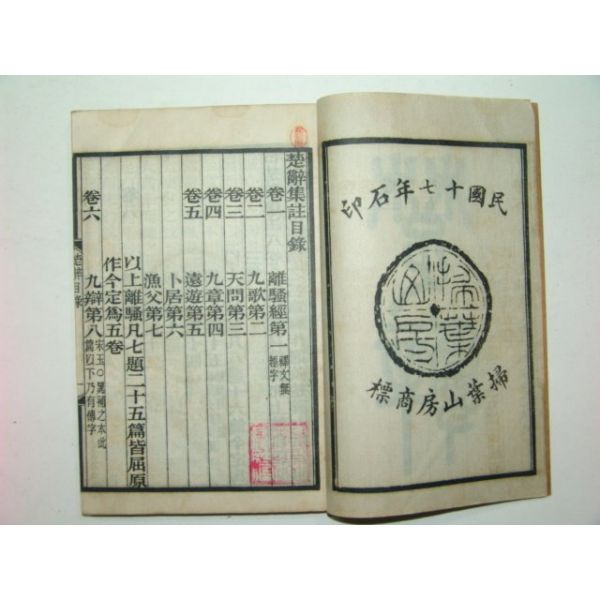 民國十七年石印
掃葉山房
掃葉山房商標
楚辭集註目錄
卷一 離騷經第一 釋文無經字
卷二 九歌第二
卷三 天問第三
卷四 九章第四
卷五 遠遊第五
卜居第六
漁父第七
以上離騷凡七題二十五篇皆屈原
作今定爲五卷
卷六 九辯第八 宋玉○晁補之本此篇以下乃有傳字
楚辭目錄